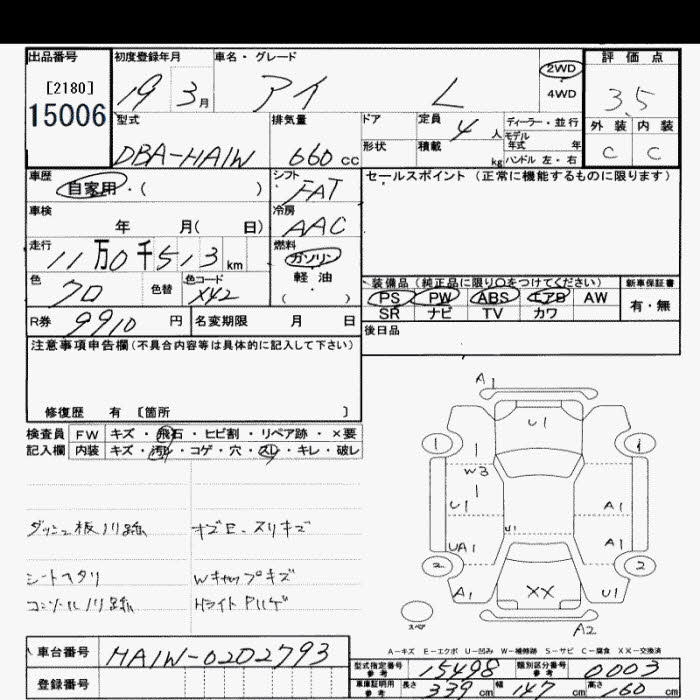 出品番号 初度登録年月 車名・グレード 評価点
[2180] 19 3月 アイ L 2WD 3.5
15006 4WD
型式 排気量 ドア 定員 4人 ディーラー・並行 外装 内装
DBA-HA1W 660cc 形状 積載 kg モデル年式 年 C C
ハンドル 左・右
車歴 自家用・( ) シフト FAT セールスポイント (正常に機能するものに限ります)
車検 年 月( 日) 冷房 AAC
走行 11万0千513km 燃料 ガソリン
軽油
( )
色 クロ 色替 色コード X42
装備品 (純正品に限り○をつけてください) 新車保証書
PS PW ABS エアB AW 有・無
SR ナビ TV カワ
R券 9910円 名変期限 月 日 後日品
注意事項申告欄(不具合内容等は具体的に記入して下さい)
修復歴 有 [箇所 ]
検査員 FW キズ・飛石・ヒビ割・リペア跡・×要
記入欄 内装 キズ・汚れ・コゲ・穴・スレ・キレ・破レ
A1
U1
1 1
W3
U1 A1
U1
UA1 A1
2 2
A1 XX U1
スペア A2
ダッシュ板ノリ跡
シートヘタリ Wキャップキズ
コンソールノリ跡 Hライト
A-キズ E-エクボ U-凹み W-補修跡 S-サビ C-腐食 XX-交換済
車台番号 HA1W-0202793
登録番号
型式指定番号 参考 15498 類別区分番号 参考 0003
車庫証明用 参考 長さ 339cm 幅 147cm 高さ 160cm